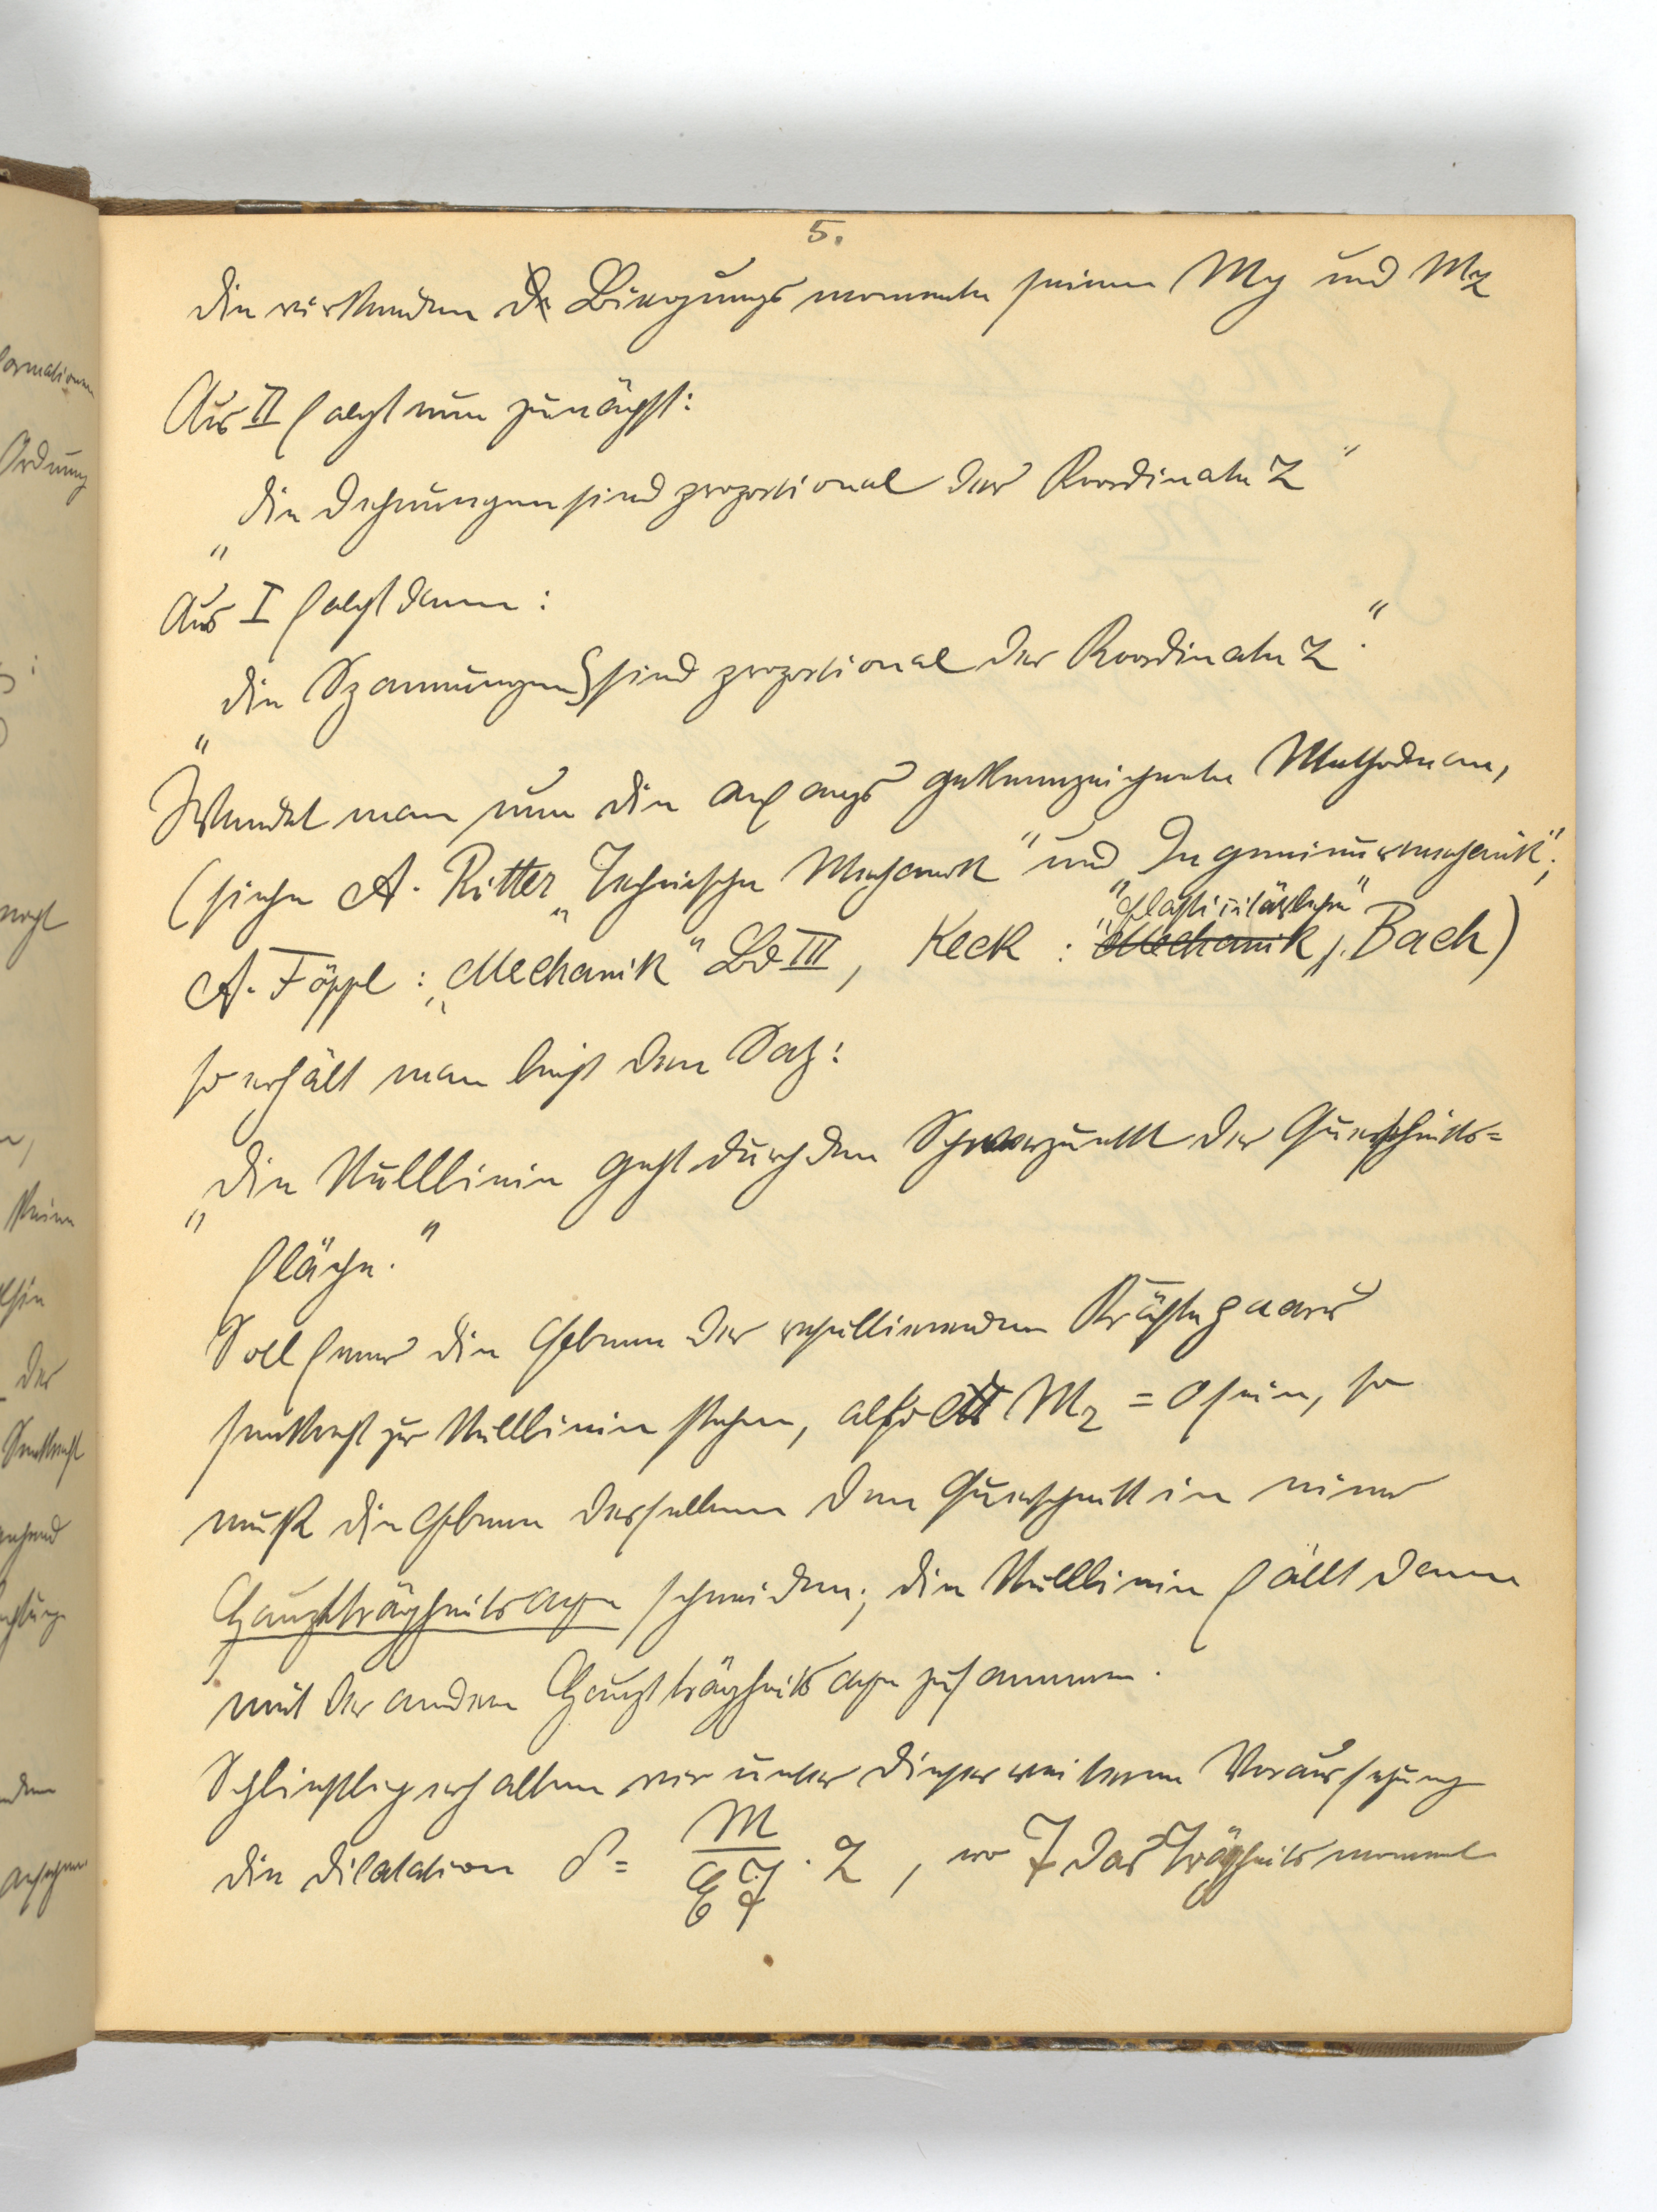 5.
die wirkenden Biegungsmomente seien My und Mz
Aus II folgt nun zunächst:
„die Dehnungen sind proportional der Koordinate z“
Aus I folgt dann:
„die Spannungen S sind proportional der Koordinate z.“
Wendet man nun die anfangs gekennzeichnete Methode an,
(siehe A. Ritter „Technische Mechanik“ und Ingenieurmechanik“;
„Elastizitätslehre“
A. Föppl: „Mechanik“ Bd III, Keck: „Mechanik“, Bach)
so erhält man leicht den Satz:
„die Nulllinie geht durch den Schwerpunkt der Querschnitts=
fläche.“
Soll ferner die Ebene der resultierenden Kräftepaare
senkrecht zur Nulllinie stehen, also Mz = 0 sein, so
muß die Ebene derselben den Querschnitt in einer
Hauptträgheitsaxe schneiden; die Nulllinie fällt dann
mit der andern Hauptträgheitsaxe zusammen.
Schließlich erhalten wir unter dieser weiteren Voraussetzung
die Dilatation δ = M/EJ · z, wo J das Trägheitsmoment